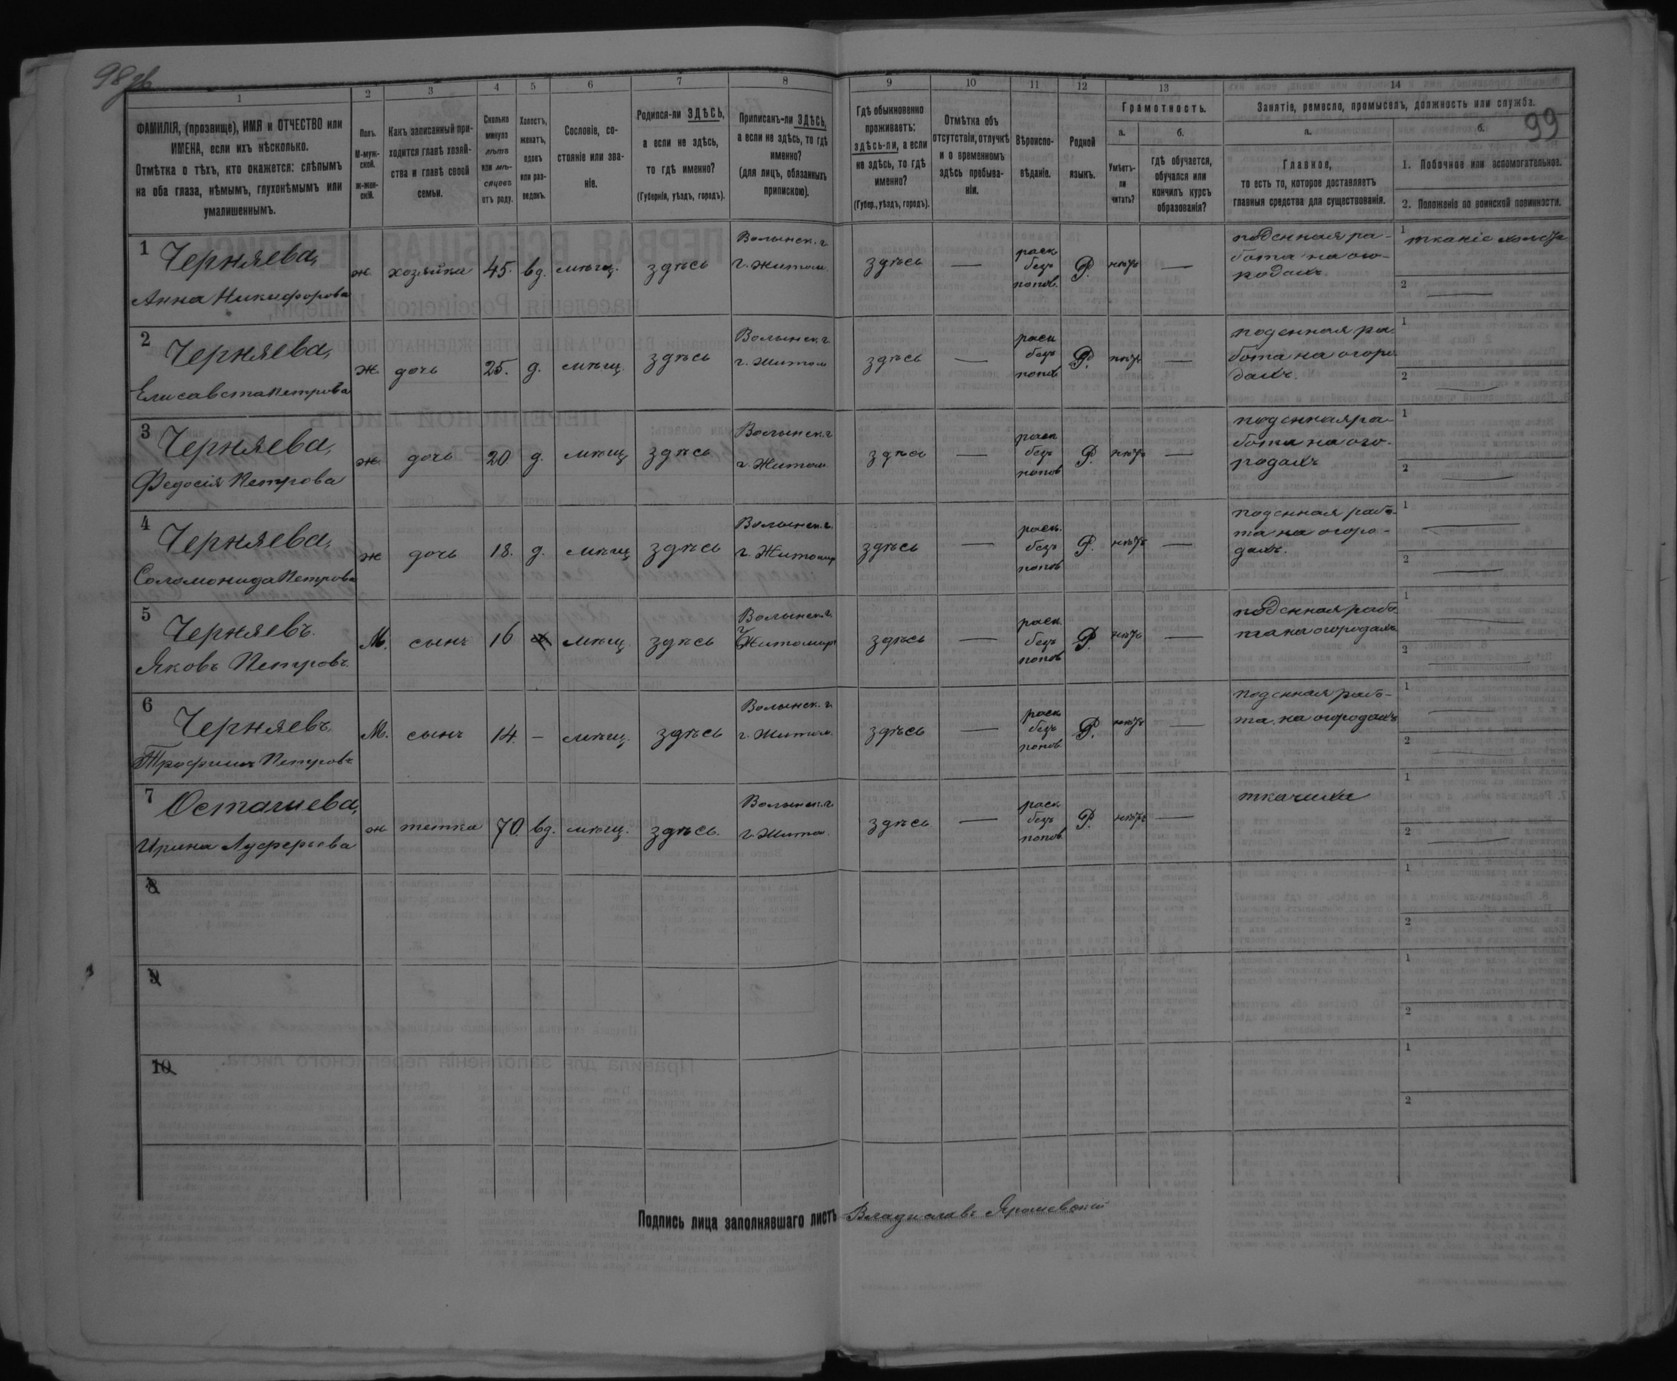 98об
99
1
2
3
4
5
6
7
8
9
10
11
12
13
14
ФАМИЛІЯ, (прозвище), ИМЯ и ОТЧЕСТВО или
ИМЕНА, если ихъ нѣсколько.
Отмѣтка о тѣхъ, кто окажется: слѣпымъ
на оба глаза, нѣмымъ, глухонѣмымъ или
умалишеннымъ.
Полъ.
М-муж-
ской.
ж-жен-
скій.
Какъ записанный при-
ходится главѣ хозяй-
ства и главѣ своей
семьи.
Сколько
минуло
лѣтъ
или мѣ-
сяцевъ
отъ роду.
Холостъ,
женатъ,
вдовъ
или раз-
веденъ.
Сословіе, со-
стояніе или зва-
ніе.
Родился-ли ЗДѢСЬ,
а если не здѣсь,
то гдѣ именно?
(Губернія, уѣздъ, городъ).
Приписанъ-ли ЗДѢСЬ,
а если не здѣсь, то гдѣ
именно?
(для лицъ, обязанныхъ
припискою).
Гдѣ обыкновенно
проживаетъ:
здѣсь-ли, а если
не здѣсь, то гдѣ
именно?
(Губер., уѣздъ, городъ).
Отмѣтка объ
отсутствіи, отлучкѣ
и о временномъ
здѣсь пребыва-
ніи.
Вѣроиспо-
вѣданіе.
Родной
языкъ.
Грамотность.
а.
б.
Умѣетъ-
ли
читать?
гдѣ обучается,
обучался или
кончилъ курсъ
образованія?
Занятіе, ремесло, промыселъ, должность или служба.
а.
б.
Главное,
то есть то, которое доставляетъ
главныя средства для существованія.
1. Побочное или вспомогательное.
2. Положеніе по воинской повинности.
1 Черняева, Анна Никифорова ж хозяйка 45. вд. мѣщ. здѣсь Волынск. г. г. Житом. здѣсь — раск. безъ попов. Р. нѣтъ — поденная ра-
бота на ого-
родахъ. 1 тканіе холста
2 —
2 Черняева, Елисавета Петрова ж дочь 25. д. мѣщ. здѣсь Волынск. г. г. Житом здѣсь — раск. безъ попов Р. нѣтъ — поденная ра-
бота на огоро
дахъ. 1
2 —
3 Черняева, Федосія Петрова ж дочь 20 д. мѣщ здѣсь Волынск. г г. Житом. здѣсь — раск безъ попов Р. нѣтъ — поденная ра-
бота на ого-
родахъ 1
2 —
4 Черняева, Соломонида Петрова ж дочь 18. д. мѣщ здѣсь Волынск. г. г. Житомир здѣсь — раск. безъ попов Р. нѣтъ — поденная рабо-
та на огоро-
дахъ. 1 —
2 —
5 Черняевъ. Яковъ Петровъ М. сынъ 16 мѣщ. здѣсь Волынск. г. г. Житомир здѣсь — раск. безъ попов Р. нѣтъ — поденная рабо
та на огородахъ 1 —
2 —
6 Черняевъ. Трофимъ Петровъ М. сынъ 14. — мѣщ. здѣсь Волынск. г. г. Житом. здѣсь — раск безъ попов Р. нѣтъ — поденная рабо-
та, на огородахъ 1 —
2 —
7 Ирина ж тетка 70 вд. мѣщ. здѣсь. Волынск. г г. Житом здѣсь — раск безъ попов Р. нѣтъ — ткачиха 1
2 —
8
1
2
9
1
2
10
1
2
Подпись лица заполнявшаго листъ Владиславъ Ярошевскій